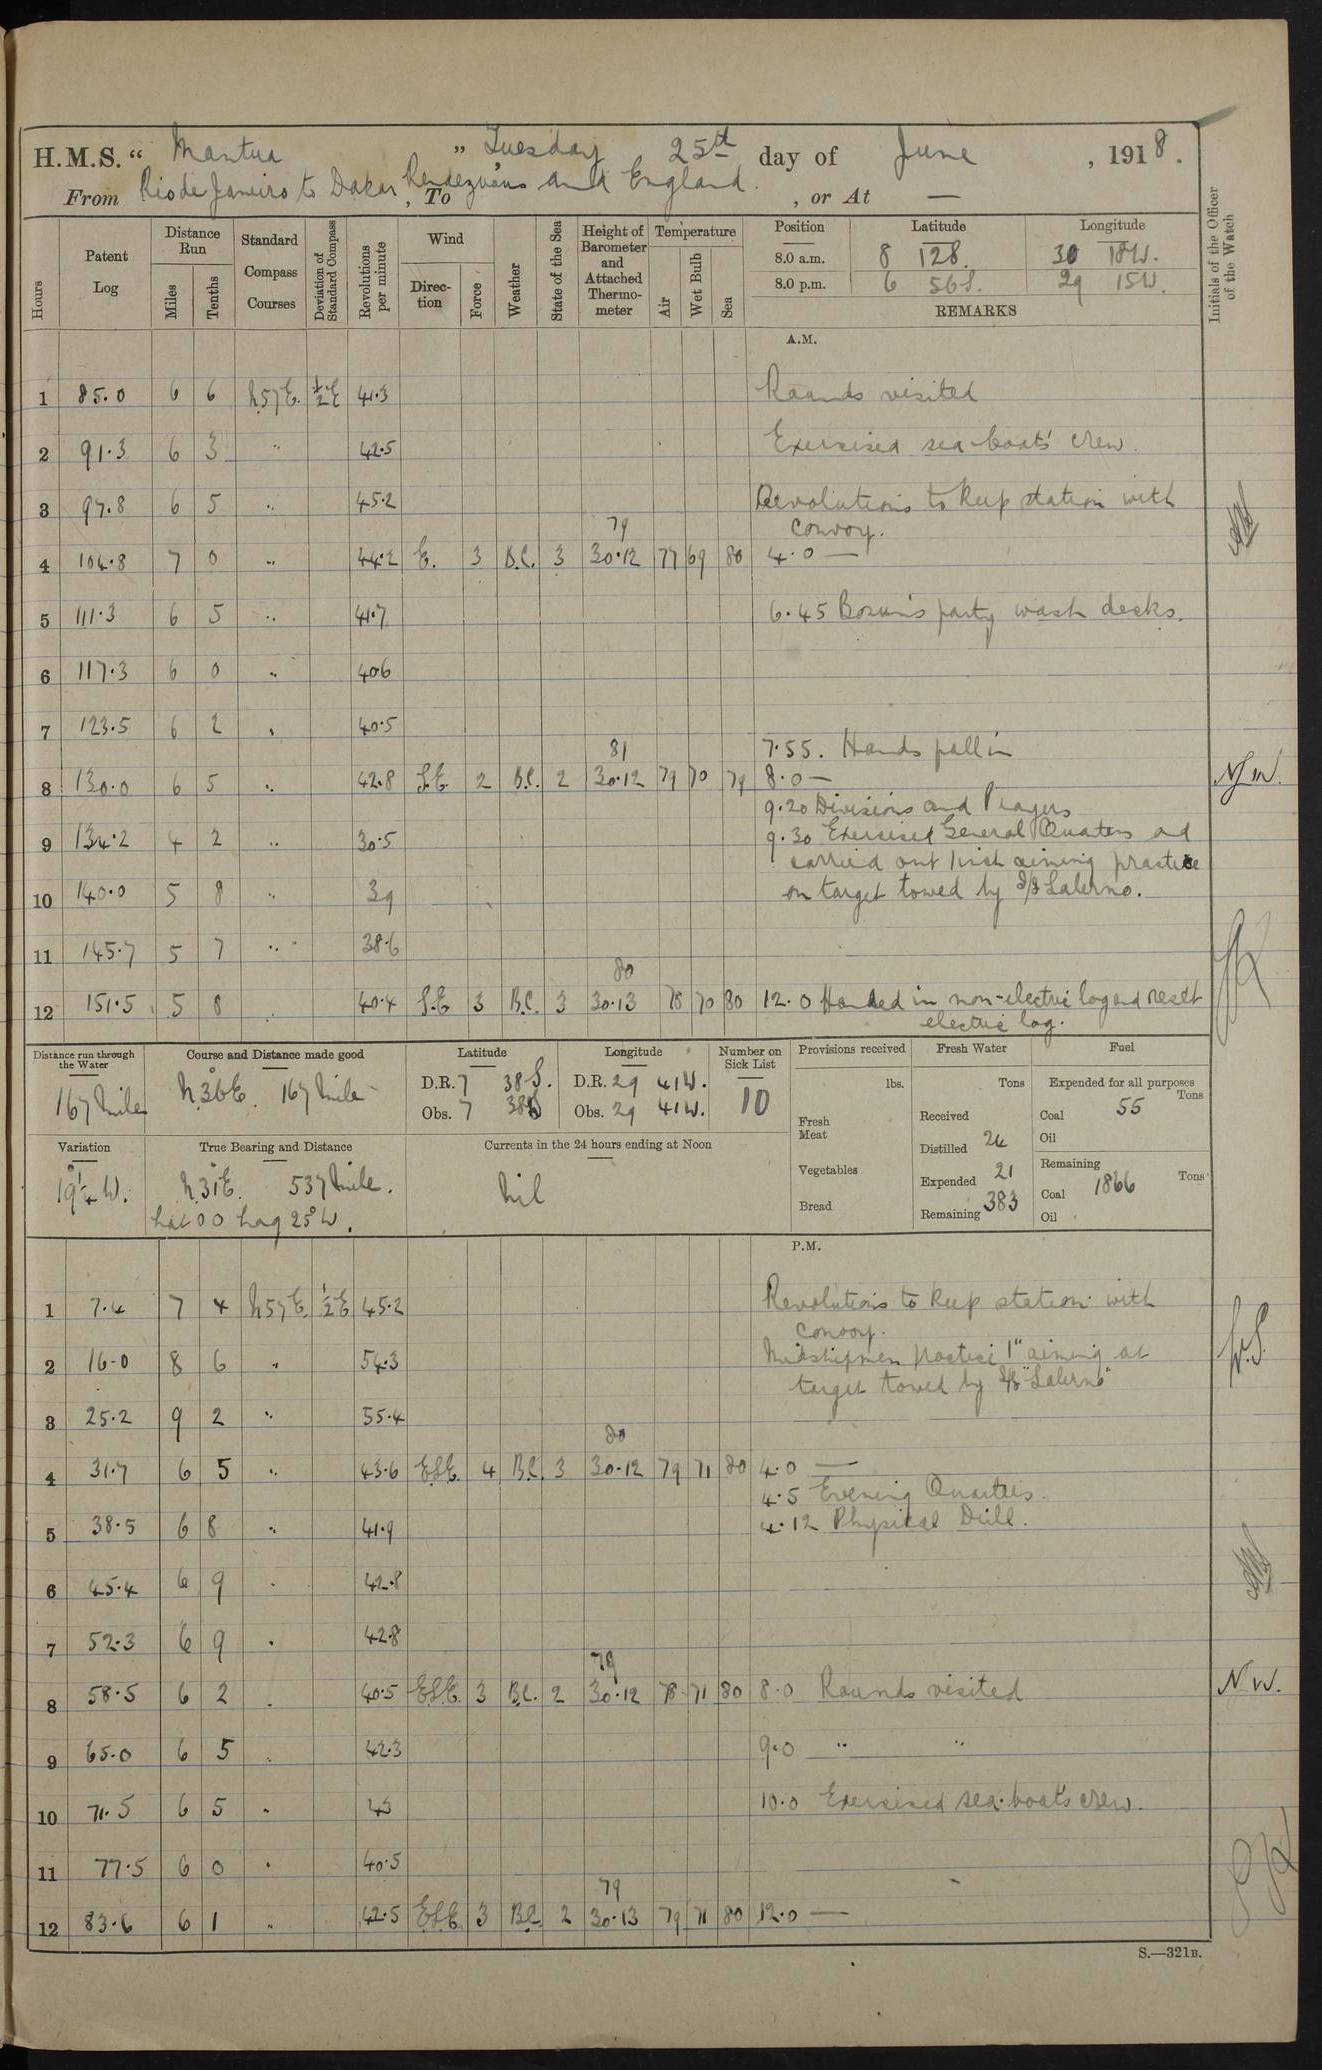 H.M.S. “ Mantua ” Tuesday 25th day of June , 1918.
From Rio de Janeiro to Dakar , To Rendezvous and England. , or At —
Hours
Patent Log
Distance Run
Miles
Tenths
Standard Compass Courses
Deviation of Standard Compass
Revolutions per minute
Wind
Direction
Force
Weather
State of the Sea
Height of Barometer and Attached Thermometer
Temperature
Air
Wet Bulb
Sea
Position Latitude Longitude
8.0 a.m. 8 12S. 30 18W.
8.0 p.m. 6 56S. 29 15W.
REMARKS
Initials of the Officer of the Watch
A.M.
1 85.0 6 6 N57E. ½E 41.3 Rounds visited
2 91.3 6 3 " 42.5 Exercised sea boats' crew.
3 97.8 6 5 " 45.2 Revolutions to keep station with
79 convoy.
4 104.8 7 0 " 44.2 E. 3 B.C. 3 30.12 77 69 80 4.0 —
5 111.3 6 5 " 41.7 6.45 Bosun's party wash decks.
6 117.3 6 0 " 40.6
7 123.5 6 2 " 40.5
81 7.55. Hands fall in
8 130.0 6 5 " 42.8 S.E. 2 B.C. 2 30.12 79 70 79 8.0 — N.W.
9.20 Divisions and Prayers
9 134.2 4 2 " 30.5 9.30 Exercised General Quarters and
carried out 1 inch aiming practice
10 140.0 5 8 " 39 on target towed by S/S Salerno.
11 145.7 5 7 " 38.6
80
12 151.5 5 8 " 40.4 S.E 3 B.C. 3 30.13 78 70 80 12.0 Handed in non-electric log and reset
electric log.
Distance run through the Water
167 Miles
Course and Distance made good
N.36°E. 167 Miles
Latitude
D.R. 7 38S.
Obs. 7 38S
Longitude
D.R. 29 41W.
Obs. 29 41W.
Number on Sick List
10
Provisions received
lbs.
Fresh Meat
Vegetables
Bread
Fresh Water
Tons
Received
Distilled 24
Expended 21
Remaining 383
Fuel
Expended for all purposes
Tons
Coal 55
Oil
Remaining
Tons
Coal 1866
Oil
Variation
19¼°W.
True Bearing and Distance
N.31°E. 537 Miles.
Lat 0 0 Long 25°W.
Currents in the 24 hours ending at Noon
Nil
P.M.
1 7.4 7 4 N57E. ½E 45.2 Revolutions to keep station with
convoy.
2 16.0 8 6 " 54.3 Midshipmen practice 1" aiming at W.S.
target towed by S/S "Salerno"
3 25.2 9 2 " 55.4
80
4 31.7 6 5 " 43.6 ESE. 4 B.C. 3 30.12 79 71 80 4.0 —
4.5 Evening Quarters.
5 38.5 6 8 " 41.9 4.12 Physical Drill.
6 45.4 6 9 " 42.8
7 52.3 6 9 " 42.8
79
8 58.5 6 2 " 40.5 ESE. 3 B.C. 2 30.12 78 71 80 8.0 Rounds visited N.W.
9 65.0 6 5 " 42.3 9.0 " "
10 71.5 6 5 " 43 10.0 Exercised sea-boats crew.
11 77.5 6 0 " 40.5
79
12 83.6 6 1 " 42.5 ESE 3 B.C. 2 30.13 79 71 80 12.0 —
S.—321B.